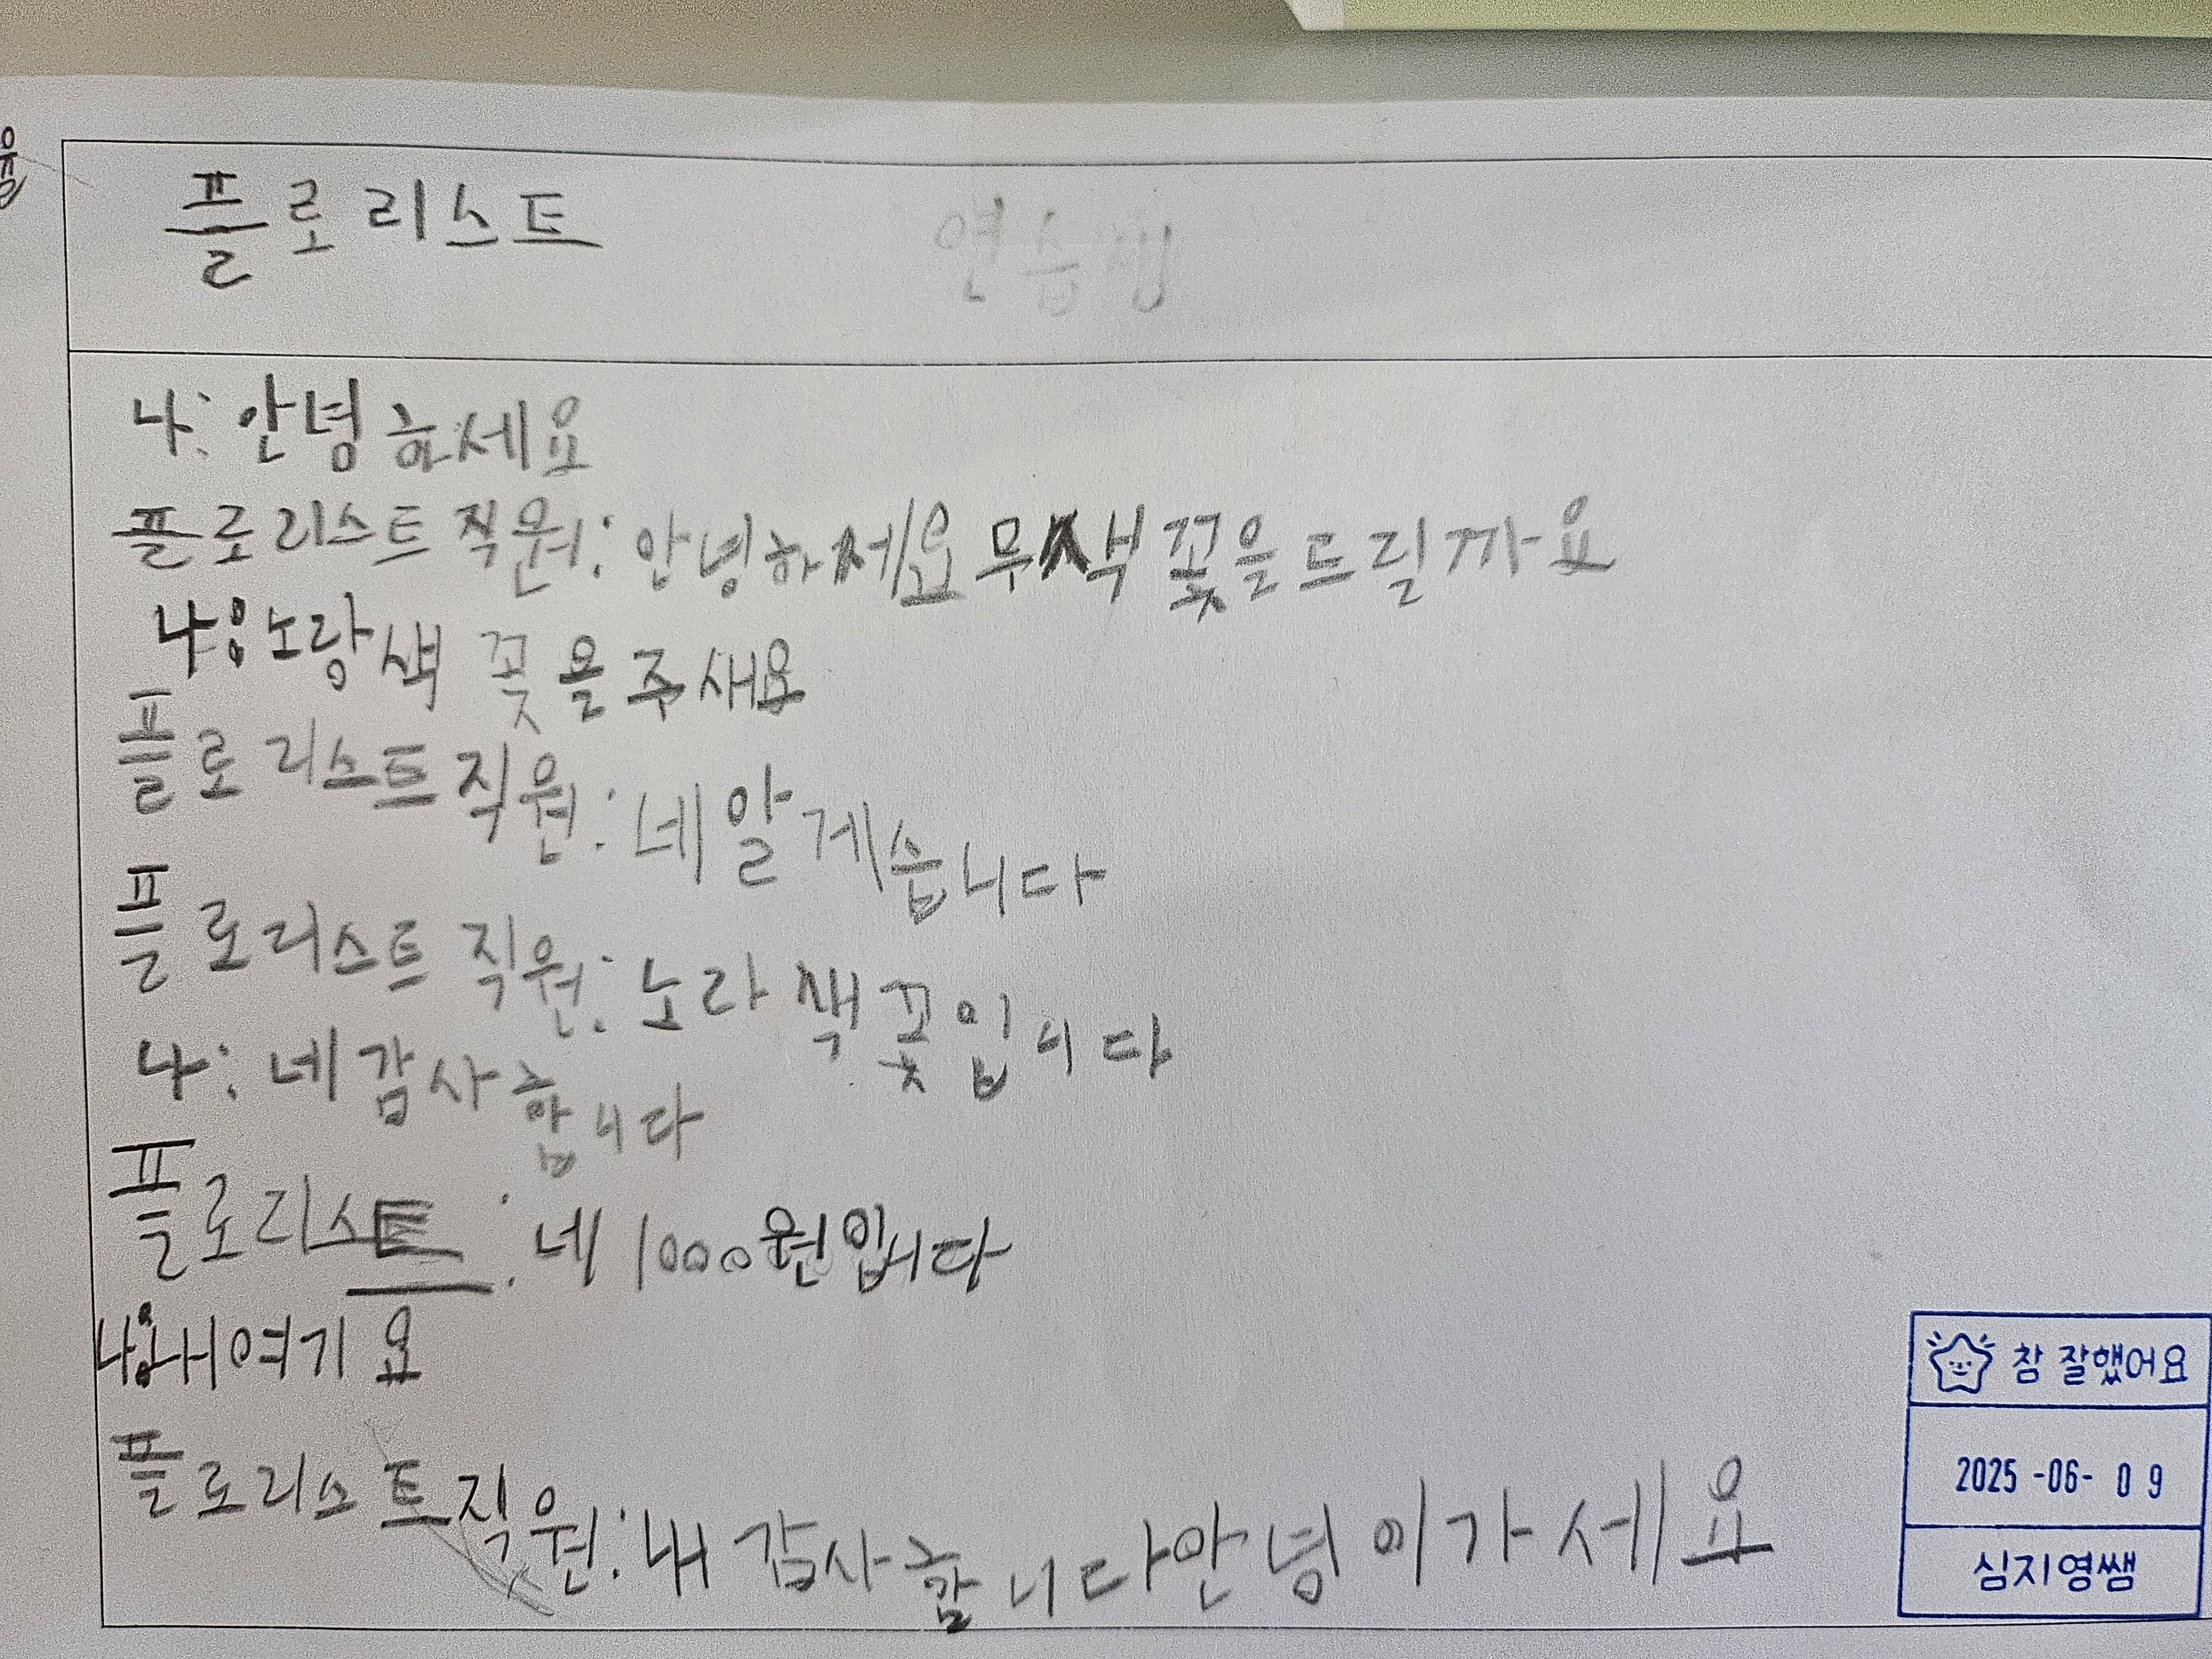 플로리스트
나: 안녕하세요
플로리스트 직원: 안녕하세요 무 색 꽃을 드릴까요
나: 노랑색 꽃을 주새요
플로리스트 직원: 네 알게습니다
플로리스트 직원: 노라 색 꽃입니다
나: 네 감사합니다
플로리스트: 네 1000원입니다
나: 내 여기요
플로리스트 직원: 내 감사합니다 안녕이가세요
참 잘했어요
2025-06-09
심지영쌤